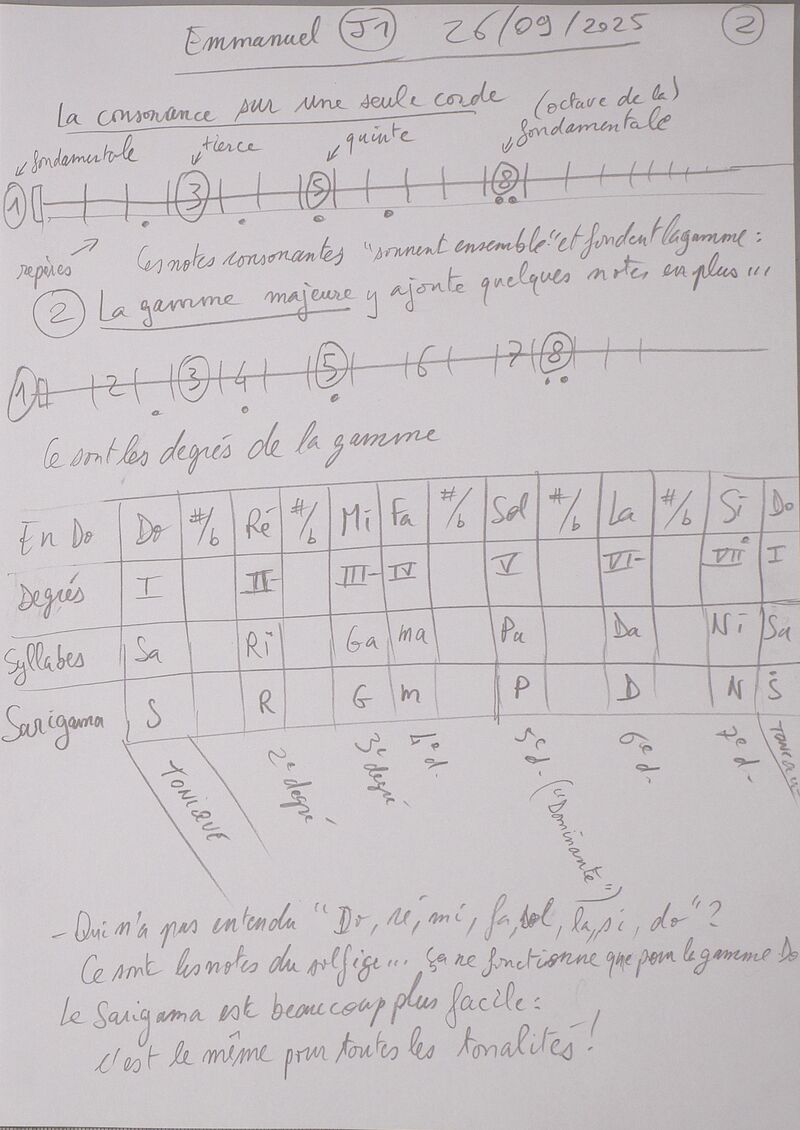 Emmanuel J1 26/09/2025 2
La consonance sur une seule corde (octave de la)
fondamentale tierce quinte fondamentale
1 3 5 8
repères Ces notes consonantes "sonnent ensemble" et fondent la gamme :
2 La gamme majeure y ajoute quelques notes en plus...
1 2 3 4 5 6 7 8
Ce sont les degrés de la gamme
En Do Do #/b Ré #/b Mi Fa #/b Sol #/b La #/b Si Do
Degrés I II- III- IV V VI- VII° I
Syllabes Sa Ri Ga ma Pa Da Ni Sa
Sarigama S R G m P D N Ṡ
TONIQUE 2e degré 3e degré 4e d- 5e d- ("Dominante") 6e d- 7e d-
- Qui n'a pas entendu "Do, ré, mi, fa, sol, la, si, do" ?
Ce sont les notes du solfège... ça ne fonctionne que pour la gamme Do
Le Sarigama est beaucoup plus facile :
c'est le même pour toutes les tonalités !